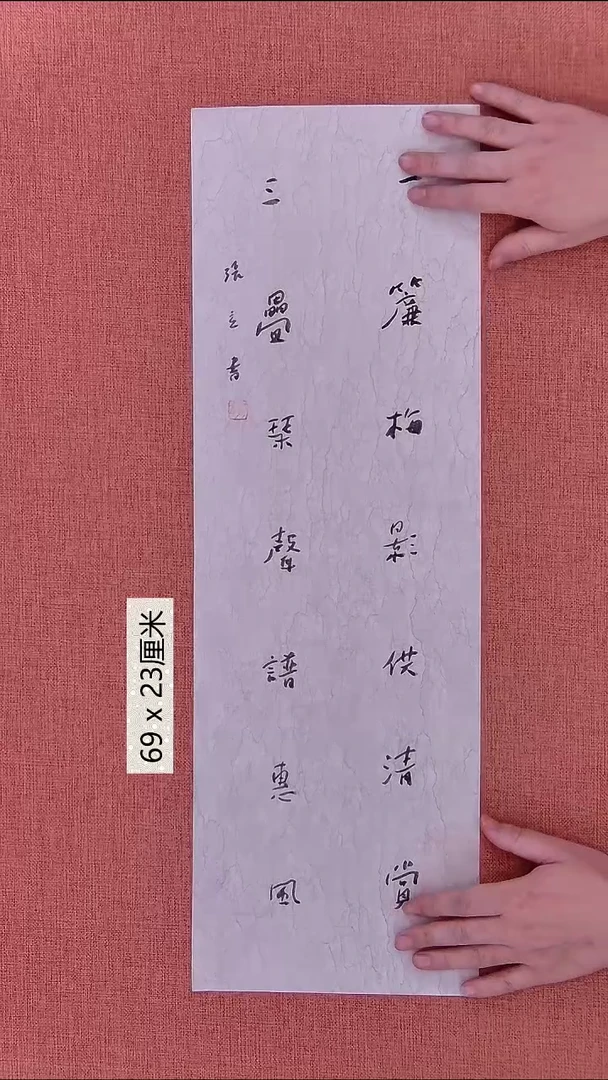 一簾梅影供清賞
三疊琹聲譜惠風
張立書
69 x 23厘米